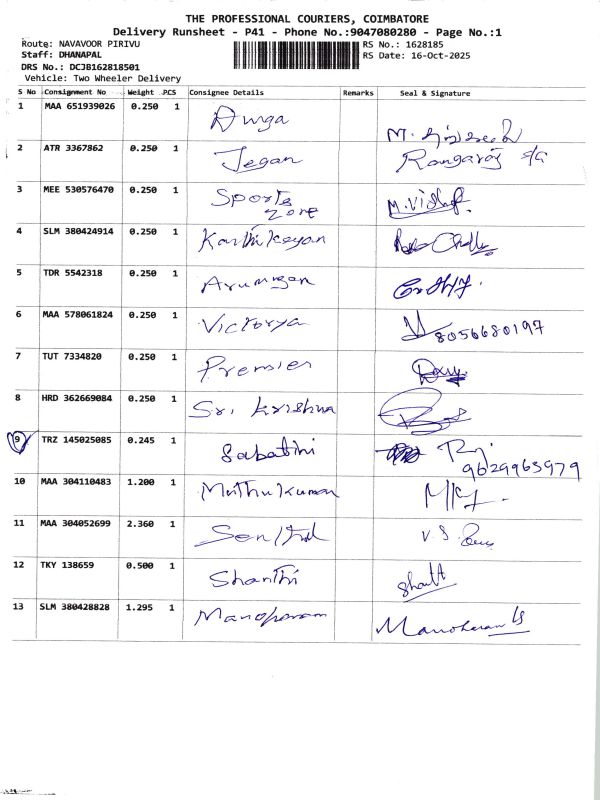 THE PROFESSIONAL COURIERS, COIMBATORE
Delivery Runsheet - P41 - Phone No.:9047080280 - Page No.:1
Route: NAVAVOOR PIRIVU
RS No.: 1628185
Staff: DHANAPAL
RS Date: 16-Oct-2025
DRS No.: DCJB162818501
Vehicle: Two Wheeler Delivery
S No Consignment No Weight PCS Consignee Details Remarks Seal & Signature
1 MAA 651939026 0.250 1 Durga
2 ATR 3367862 0.250 1 Jegan Rangaraj
3 MEE 530576470 0.250 1 Sports
zone
4 SLM 380424914 0.250 1 Karthikeyan
5 TDR 5542318 0.250 1 Arumugan
6 MAA 578061824 0.250 1 Victorya 8056680197
7 TUT 7334820 0.250 1 Premier
8 HRD 362669084 0.250 1 Sri Krishna
9 TRZ 145025085 0.245 1 Sabathi
9629963979
10 MAA 304110483 1.200 1 Muthukumar
11 MAA 304052699 2.360 1
12 TKY 138659 0.500 1 Shanthi
13 SLM 380428828 1.295 1 Manoharan Manoharan